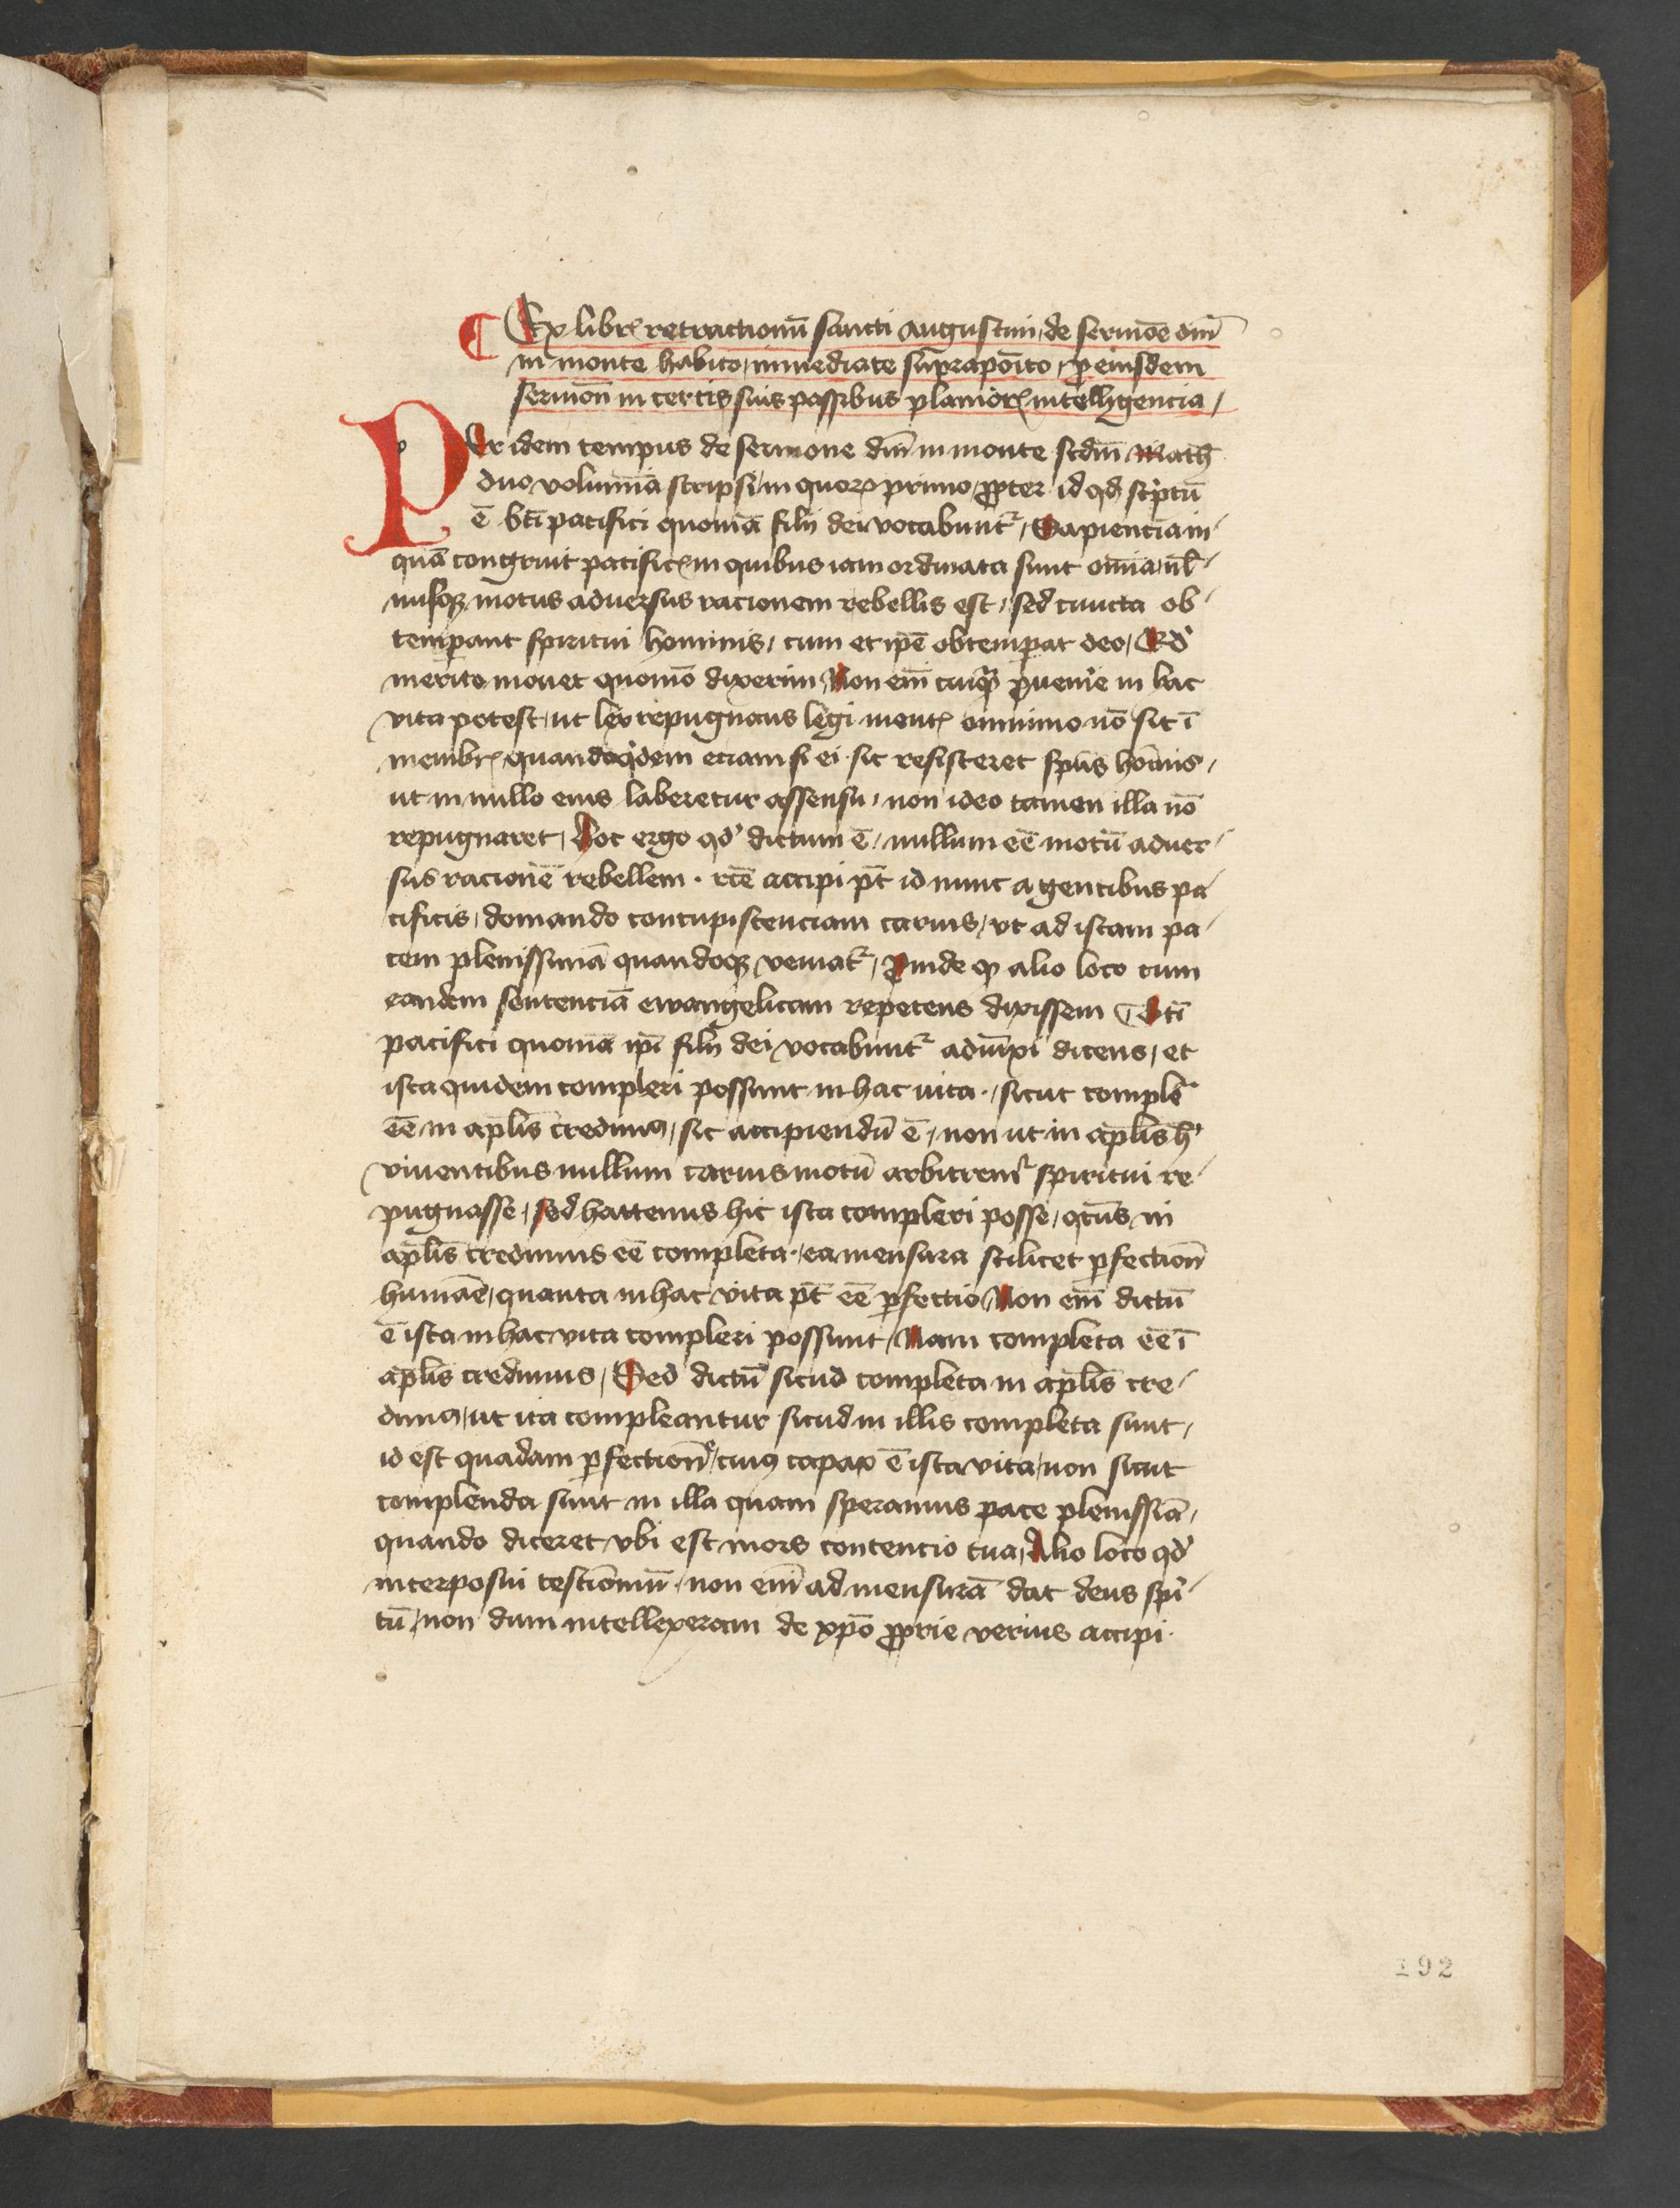 ¶ Ex libr̕ retractionū sancti Augustini, de sermōe dnī
in monte habito, immediate supraposito, ꝓ eiusdem
sermōn̄ in certis suis passibus planior̕ intelligencia,
Per idem tempus de sermone dn̄i in monte scdm̄ Math̄
duo volumīā scripsi, in quoꝝ primo, ꝓpter id qd̕ sc̕ptū
ē bt̄i pacifici quoniā filij dei vocabunt᷑, Sapiencia in-
quā congruit pacific̕ in quibus iam ordinata sunt om̄ia, nl̄-
lusqꝫ motus adversus racionem rebellis est, sed cuncta ob-
temꝑant spiritui hominis, cum et ip̄e obtemꝑat deo, Qd̕
merito movet quomō dixerim, Non em̄ cuiqᷓ ꝓvenīe in hac
vita potest, ut lex repugnans legi ment̕ omnimo nō sit ī
membr̕ quandoqͥdem eciam si ei sic resisteret sp̄us hōīnis,
ut in nullo eius laberetur assensu, non ideo tamen illa nō
repugnaret, Hoc ergo qd̕ dictum ē, nullum eē motū adver-
sus racionē rebellem · rc̄e accipi pt̄ id nunc agentibus pa-
cificis, domando concupiscenciam carnis, ut ad istam pa-
cem plenissimā quandoqꝫ veniat᷑, Proinde qꝫ alio loco cum
eandem sentenciā ewangelicam repetens dixissem Bt̄i
pacifici quoniā ip̄i filij dei vocabunt᷑ adiūxi dicens, et
ista quidem compleri possunt in hac vita, sicut complē
eē in apl̄is credimꝰ, sic accipiendū ē, non ut in apl̄is h̕
viventibus nullum carnis motū arbitrem᷑ spiritui re-
pugnasse, sed hattenus hic ista compleri posse, qͣt̄nus in
apl̄is credimus eē completa, ea mensura scilicet ꝑfection̄
humāe, quanta in hac vita pt̄ eē ꝑfectio, Non em̄ dictū
ē ista in hac vita compleri possunt, Nam completa eē ī
apl̄is credimus, Sed dictū sicud completa in apl̄is cre-
dimꝰ, ut ita compleantur sicud in illis completa sunt,
id est quadam ꝑfectione, cuiꝰ capax ē ista vita, non sicut
complenda sunt in illa quam speramus pace plenissiā,
quando diceret vbi est mors contencio tua, Alio loco qd̕
interposui testīoniū, non em̄ ad mensurā dat deus spi-
tū, non dum intellexeram de xp̄o ꝓprie verius accipi.
192